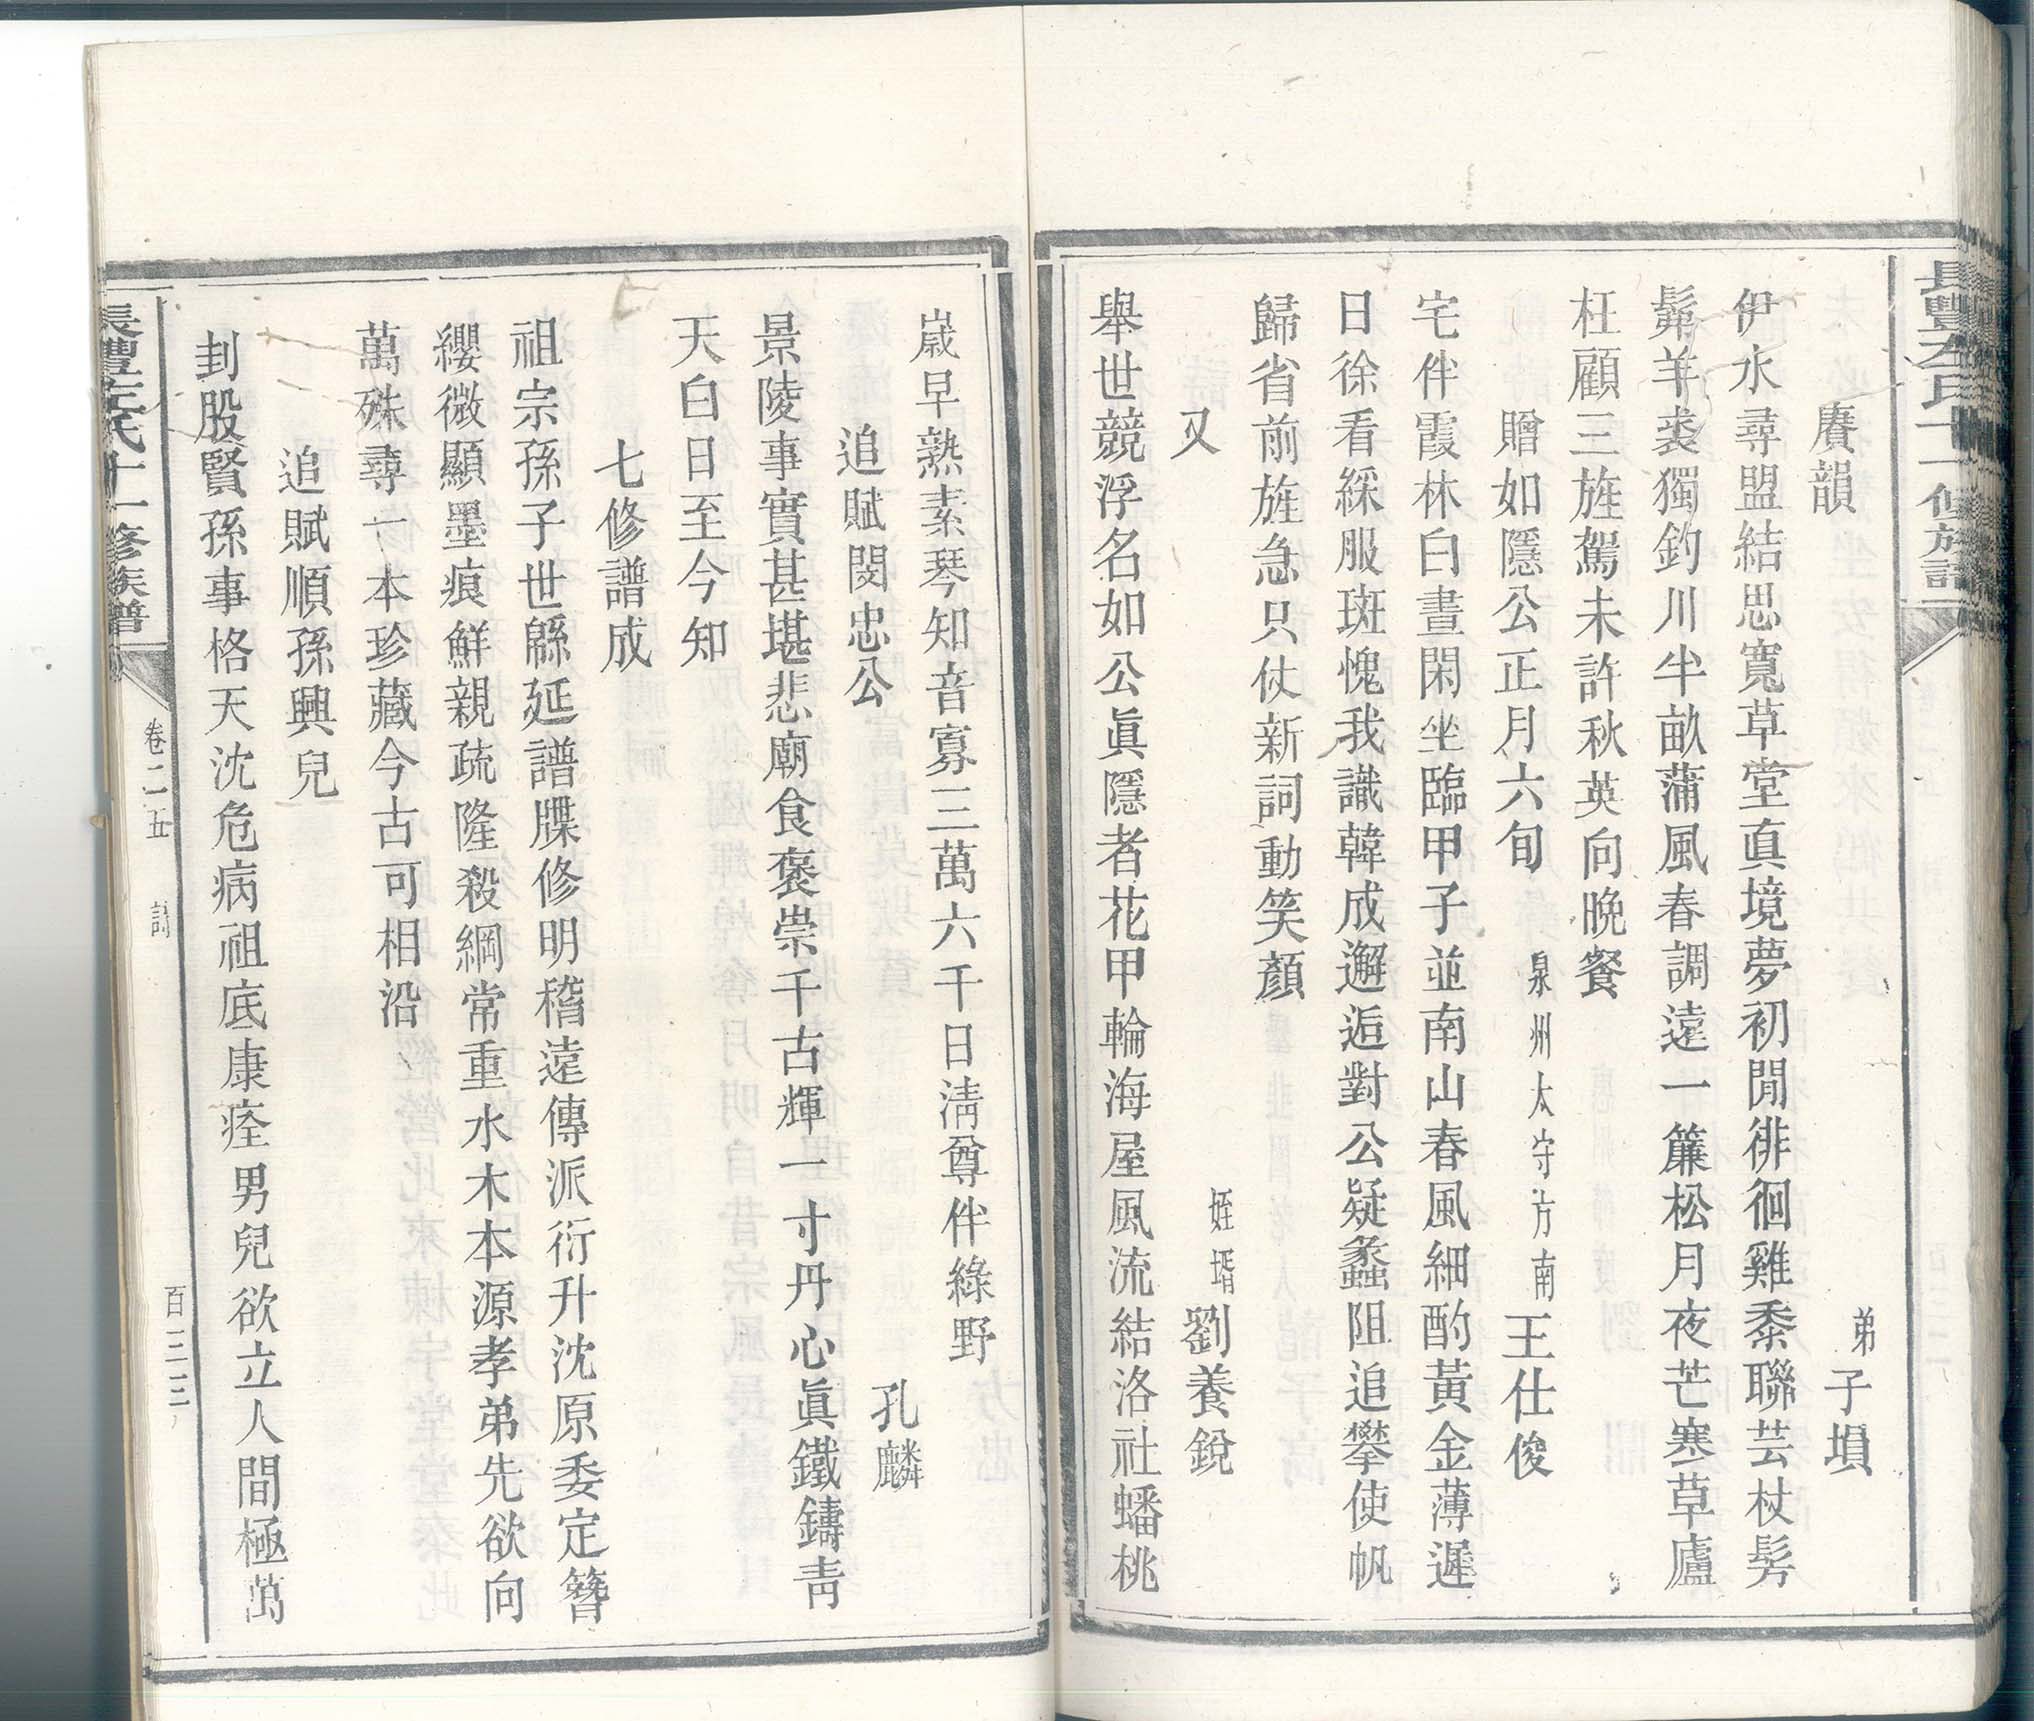 賡韻
弟子塤
伊水尋盟結思寬草堂眞境夢初閒徘徊雞黍聯芸杖髣
髴羊裘獨釣川半畝蒲風春調遠一簾松月夜芒寒草廬
枉顧三旌駕未許秋英向晚餐
贈如隱公正月六旬
泉州太守方南王仕俊
宅伴霞林白晝閑坐臨甲子並南山春風細酌黃金薄遲
日徐看綵服斑愧我識韓成邂逅對公疑蠡阻追攀使帆
歸省前旌急只仗新詞動笑顏
又
姪壻劉養銳
舉世競浮名如公眞隱者花甲輪海屋風流結洛社蟠桃
歲早熟素琴知音寡三萬六千日清尊伴綠野
追賦閔忠公
孔麟
景陵事實甚堪悲廟食褒崇千古輝一寸丹心眞鐵鑄靑
天白日至今知
七修譜成
祖宗孫子世緜延譜牒修明稽遠傳派衍升沈原委定簪
纓微顯墨痕鮮親疏隆殺綱常重水木本源孝弟先欲向
萬殊尋一本珍藏今古可相沿
追賦順孫興兒
刲股賢孫事格天沈危病祖底康痊男兒欲立人間極萬
長豐左氏十一修族譜
卷二五
詩
百三三